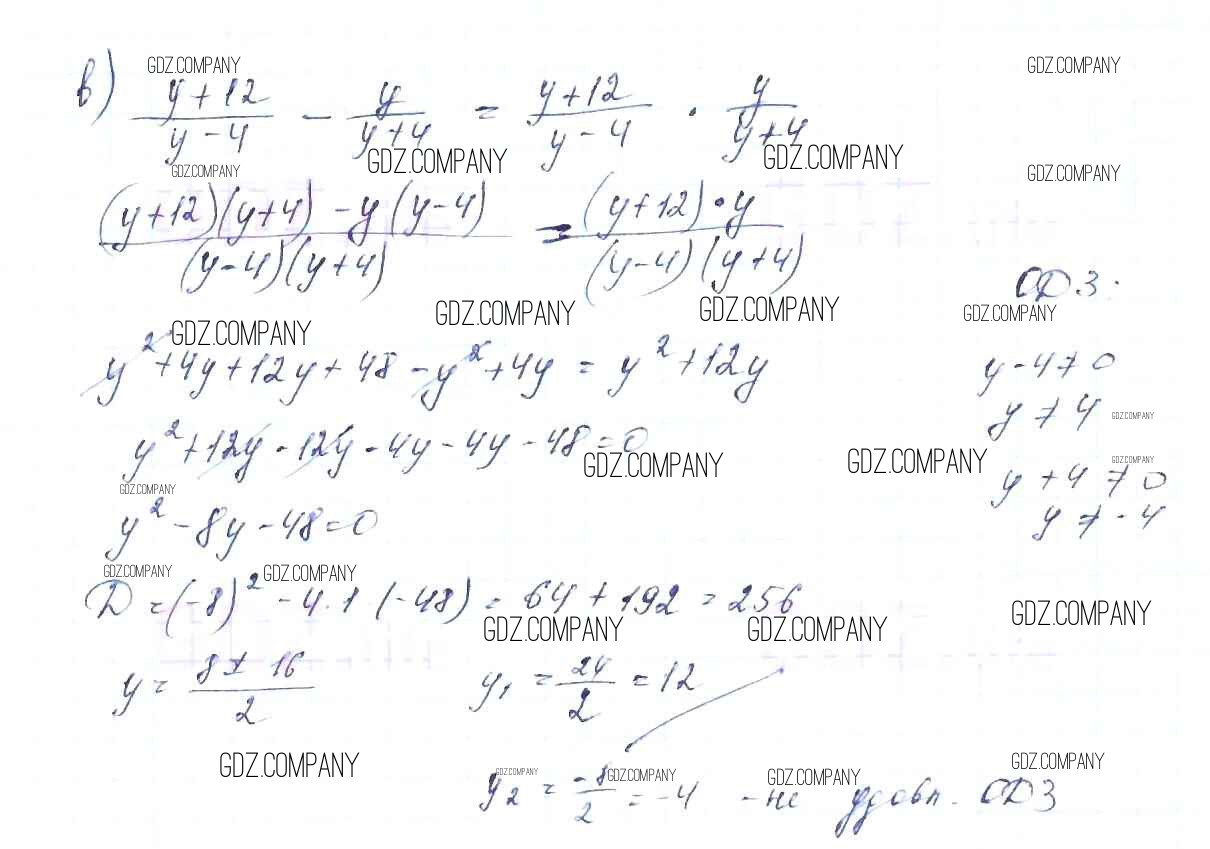 GDZ.COMPANY GDZ.COMPANY
в) (y+12)/(y-4) - y/(y+4) = (y+12)/(y-4) · y/(y+4)
GDZ.COMPANY GDZ.COMPANY
GDZ.COMPANY GDZ.COMPANY
((y+12)(y+4) - y(y-4))/((y-4)(y+4)) = ((y+12)·y)/((y-4)(y+4))
ОДЗ:
GDZ.COMPANY GDZ.COMPANY GDZ.COMPANY GDZ.COMPANY
y² + 4y + 12y + 48 - y² + 4y = y² + 12y y - 4 ≠ 0
y ≠ 4 GDZ.COMPANY
y² + 12y - 12y - 4y - 4y - 48 = 0
GDZ.COMPANY GDZ.COMPANY GDZ.COMPANY
y + 4 ≠ 0
GDZ.COMPANY
y² - 8y - 48 = 0 y ≠ -4
GDZ.COMPANY GDZ.COMPANY
D = (-8)² - 4·1 (-48) = 64 + 192 = 256
GDZ.COMPANY GDZ.COMPANY GDZ.COMPANY
y = (8 ± 16)/2 y₁ = 24/2 = 12
GDZ.COMPANY GDZ.COMPANY
GDZ.COMPANY GDZ.COMPANY GDZ.COMPANY
y₂ = -8/2 = -4 - не удовл. ОДЗ